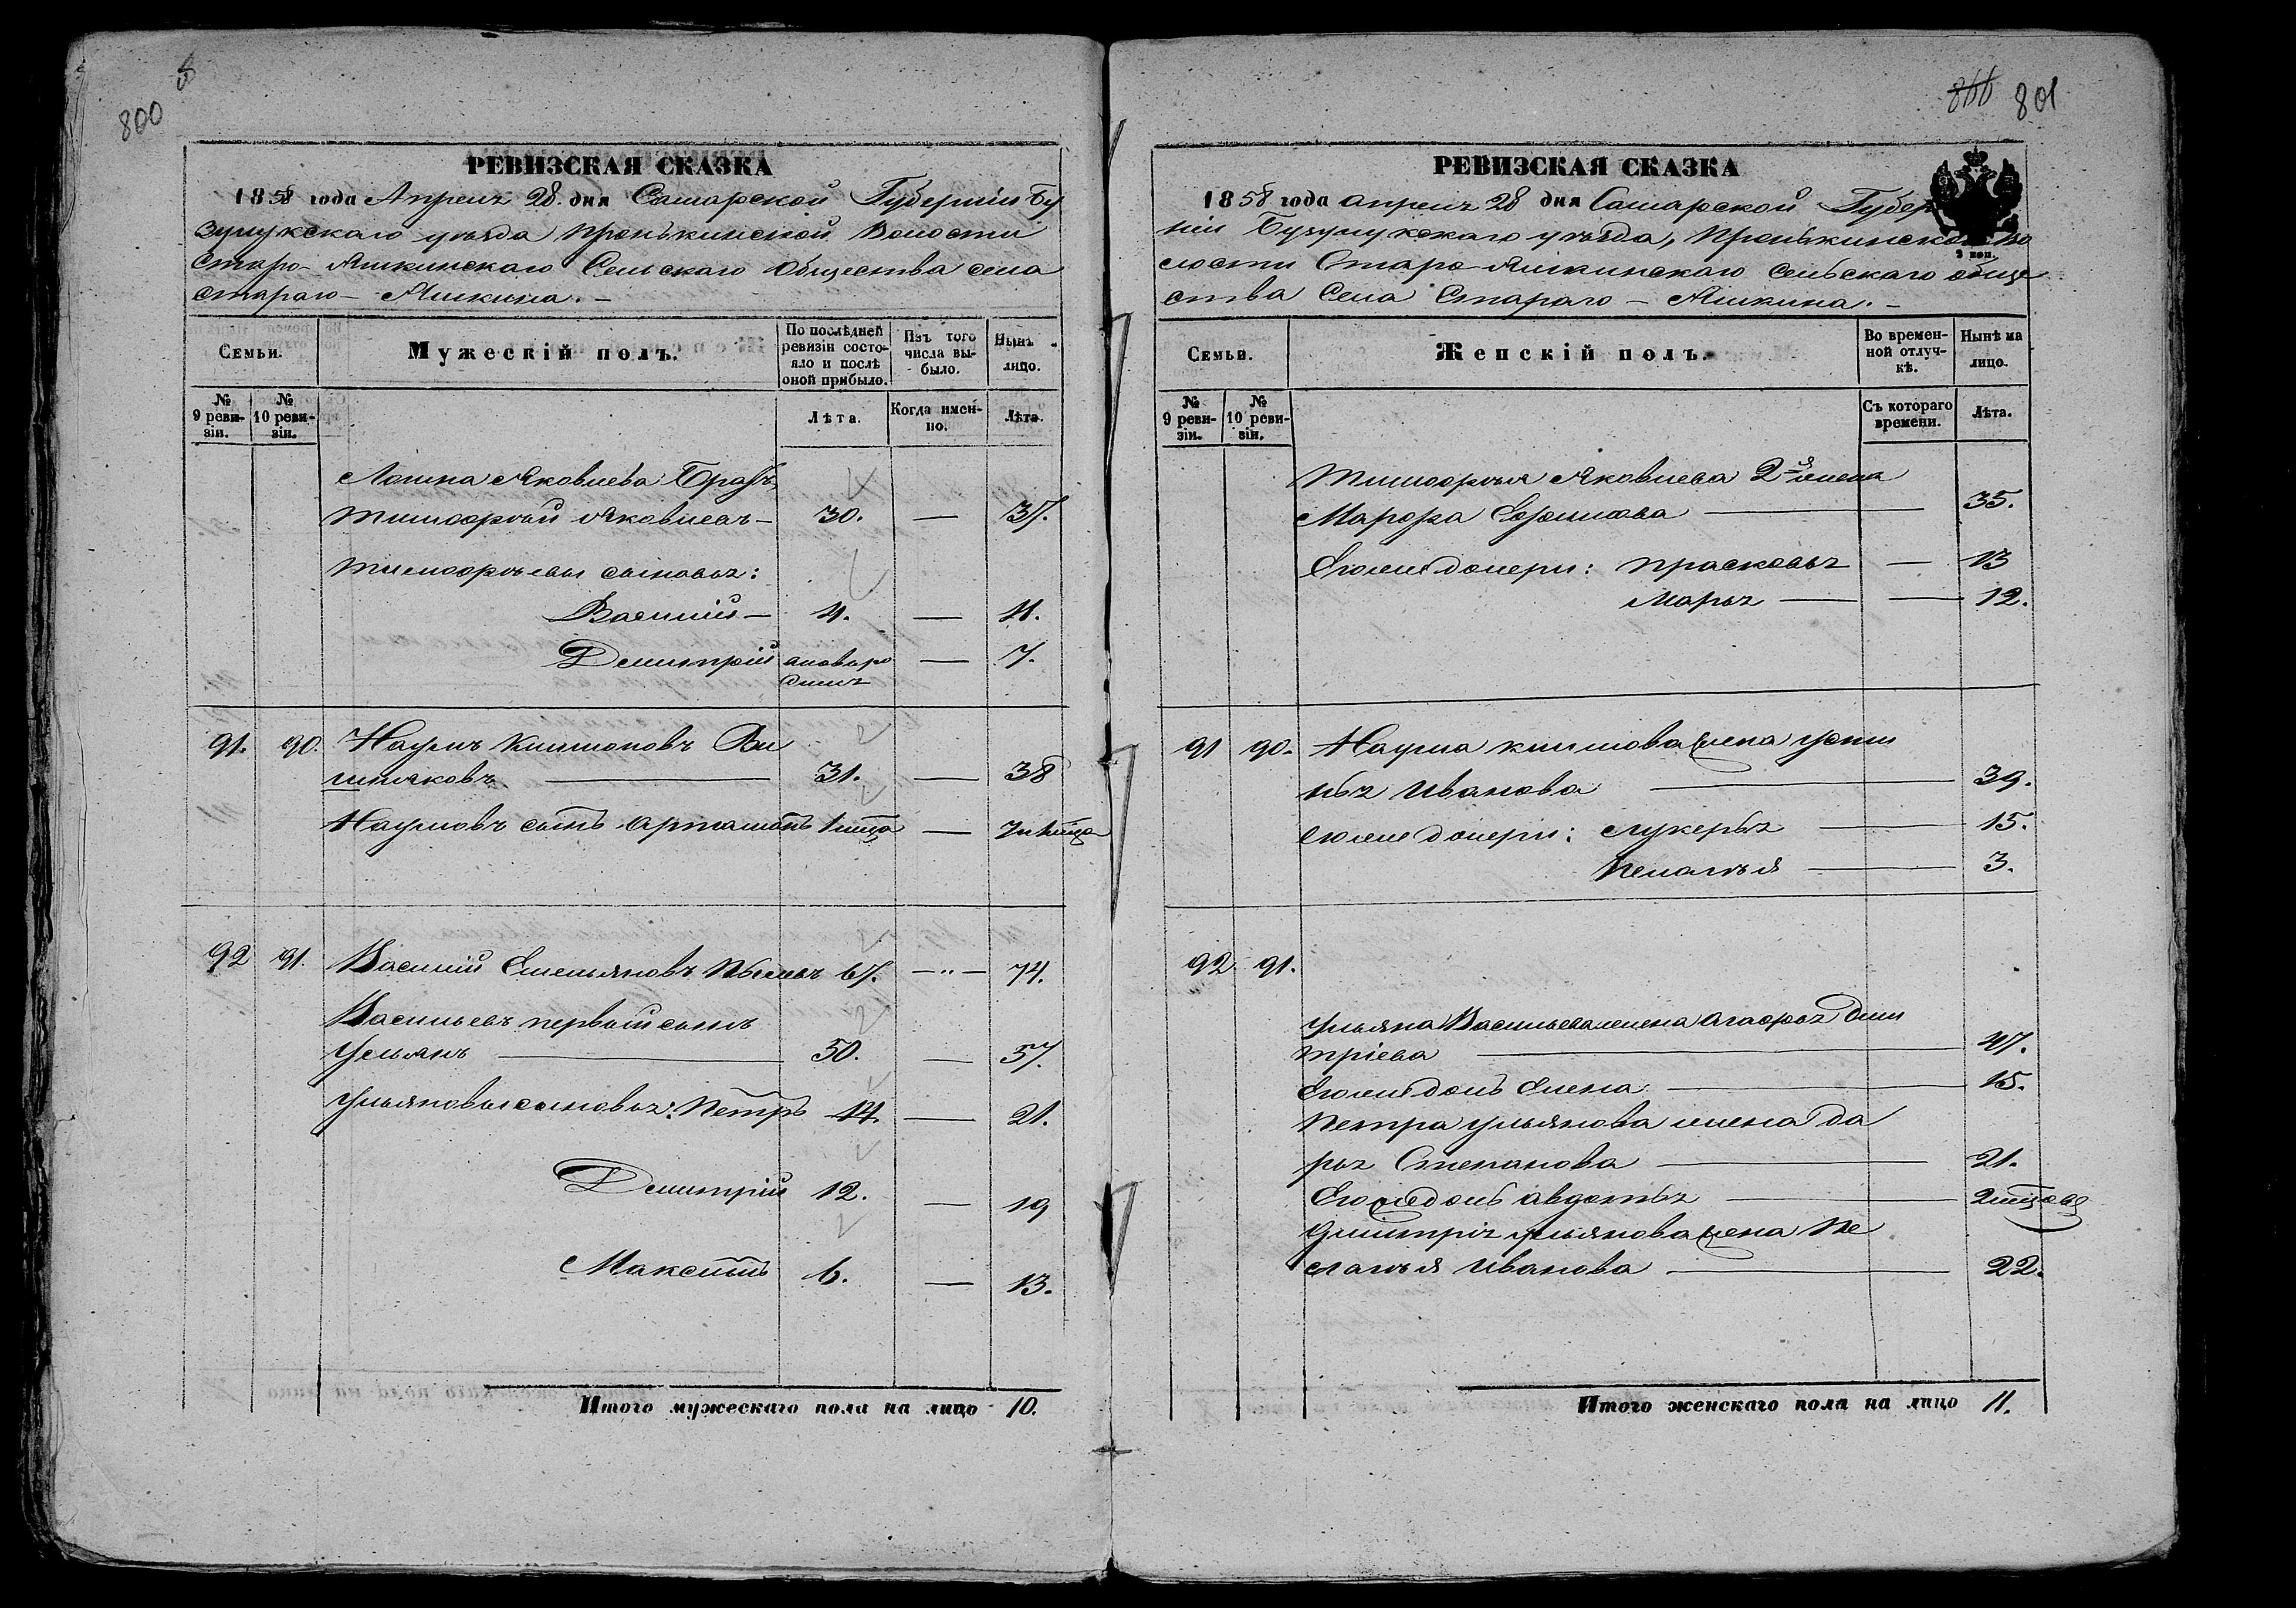 800
РЕВИЗСКАЯ СКАЗКА
1858 года Апреля 28 дня Самарской Губерніи Бу
зулукскаго уезда Пронькинской Волости
Старо-Яшкинскаго Сельскаго Общества села
Стараго-Яшкина.
Семьи.
Мужескій полъ.
По послѣдней ревизіи состояло и послѣ оной прибыло.
Изъ того числа выбыло.
Нынѣ лицо.
№ 9 ревизіи.
№ 10 ревизіи.
Лѣта.
Когда именно.
Лѣта.
Логина Яковлева Братъ
Тимофѣй Яковлевъ — 30. — 37.
Тимофѣевы сыновья:
Василій — 4. — 11.
Дмитрій новоро — 7.
91. 90. Наумъ Климоповъ Ви
шняковъ — 31. — 38
Наумовъ сынъ Артамонъ
92 91. Василій Емельяновъ 67. — 74.
Васильевъ первый сынъ
Ульянъ — 50. — 57.
Ульяновы сыновья: Петръ 14. — 21.
Дмитрій 12. — 19
Максимъ 6. — 13.
Итого мужескаго пола на лицо 10.
866 801
РЕВИЗСКАЯ СКАЗКА
1858 года апреля 28 дня Самарской Губер
ніи Бузулукскаго уезда, Пронькинской Во
лости Старо-Яшкинскаго сельскаго обще
ства Села Стараго-Яшкина.
Семьи.
Женскій полъ.
Во временной отлучкѣ.
Нынѣ на лицо.
№ 9 ревизіи.
№ 10 ревизіи.
Съ котораго времени.
Лѣта.
Тимофѣя Яковлева 2я жена
Марфа — 35.
Егоже дочери: Прасковья — 13
Марья — 12.
91 90. Наума Климова жена Усти
нья Иванова — 39.
Егоже дочери: Лукерья — 15.
Пелагѣя — 3.
92 91.
Ульяна Васильева жена Агафья Дми
тріева — 47.
Егоже дочь Елена — 15.
Петра Ульянова жена Да
рья Степанова — 21.
Егоже дочь Авдотья —
Дмитрія Ульянова жена Пе
лагѣя Иванова — 22.
Итого женскаго пола на лицо 11.